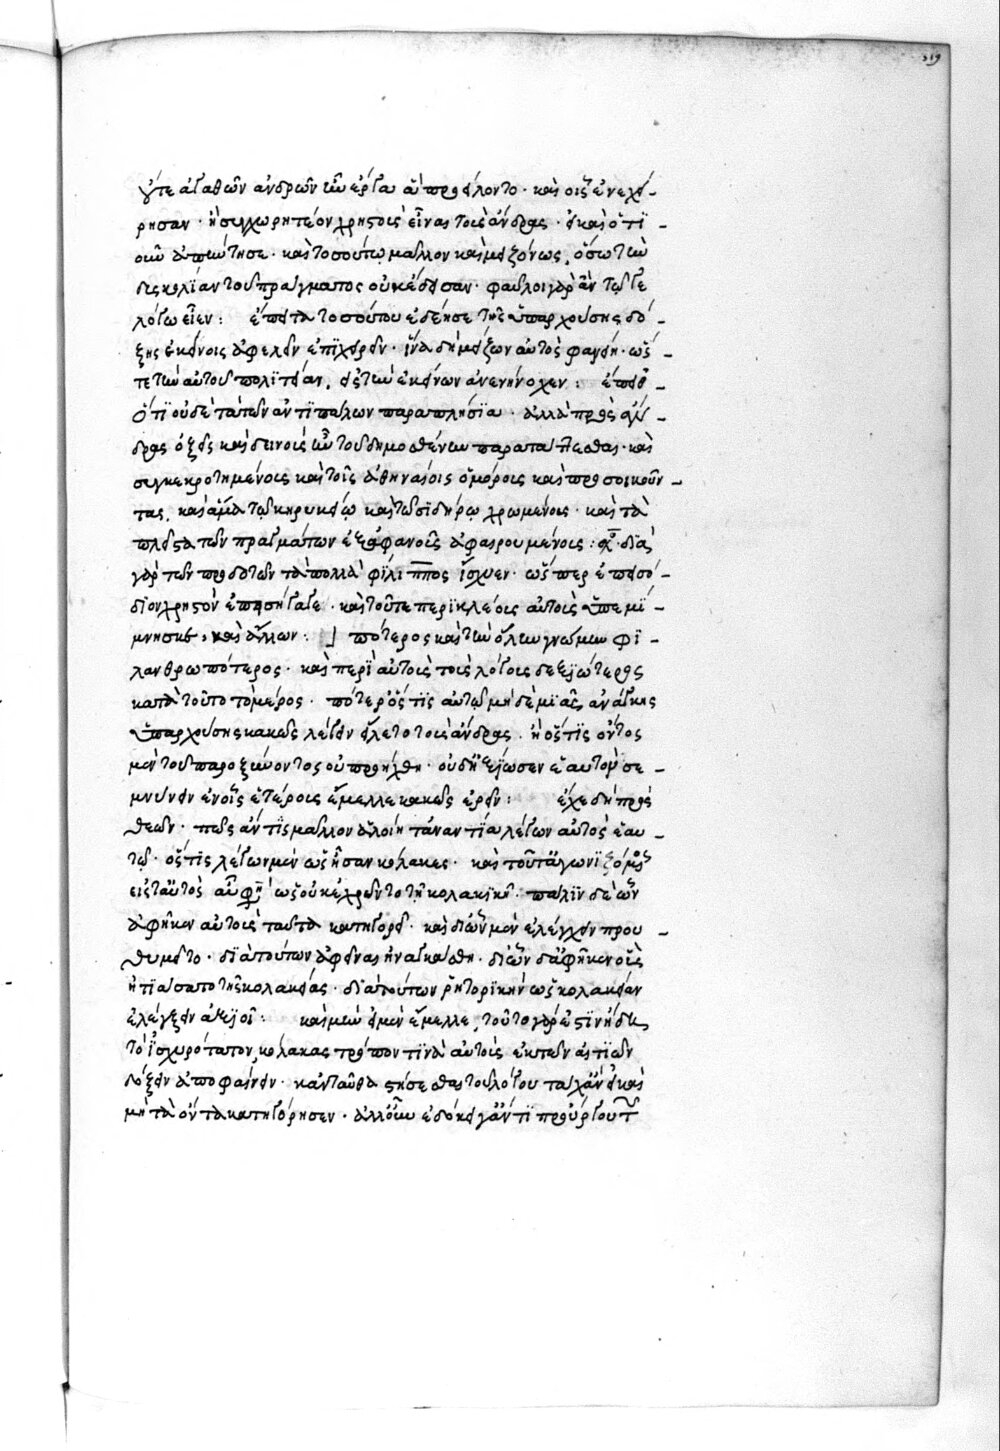 319
οὔτε ἀγαθῶν ἀνδρῶν ἦν ἔργα ἃ προείλοντο· καὶ οἷς ἐνεχεί-
ρησαν· ἢ συγχωρητέον χρηστοὺς εἶναι τοὺς ἄνδρας· εἰ καὶ ὅτι
οὖν ἀπήντησε· καὶ τοσούτῳ μᾶλλον καὶ μειζόνως, ὅσῳ τὴν
δυσκολίαν τοῦ πράγματος οὐκ ἔδεισαν· φαῦλοι γὰρ ἂν τῷ γε
λόγῳ εἶεν: ἔπειτα τοσούτου ἐδέησε τῆς ὑπαρχούσης δό-
ξης ἐκείνοις ἀφελεῖν ἐπιχειρεῖν· ἵνα δὴ μείζων αὐτὸς φανείη· ὥσ-
τε τὴν αὐτοῦ πολιτείαν, εἰς τὴν ἐκείνων ἀνενήνοχεν: ἔπειθ'
ὅτι οὐδὲ τὰ τῶν ἀντιπάλων παραπλήσια· ἀλλὰ πρὸς ἄν-
δρας ὀξεῖς καὶ δεινοὺς ἦν τοῦ δημοσθένους παρατάττεσθαι· καὶ
συγκεκροτημένους καὶ τοῖς ἀθηναίοις ὁμόρους καὶ προσοικοῦν-
τας, καὶ ἅμα τῷ κηρυκείῳ καὶ τῷ σιδήρῳ χρωμένους· καὶ τὰ
πλεῖστα τῶν πραγμάτων ἐξ ἀφανοῦς ἀφαιρουμένους: διὰ
γὰρ τῶν προδοτῶν τὰ πολλὰ φίλιππος ἴσχυεν· ὥσπερ ἐπεισό-
διον χρηστὸν ἐπεισήγαγε· καὶ τοῦτο περικλέους αὐτοὺς ὑπεμί-
μνησκε, καὶ ἄλλων: πότερος καὶ τὴν ὅλην γνώμην φι-
λανθρωπότερος· καὶ περὶ αὐτοὺς τοὺς λόγους δεξιώτερος
κατὰ τοῦτο τὸ μέρος· πότερ' ὅστις αὐτῷ μηδεμιᾶς ἀνάγκης
ὑπαρχούσης κακῶς λέγειν εἵλετο τοὺς ἄνδρας· ἢ ὅστις ὄντος
μὲν τοῦ παροξύνοντος οὐ προήχθη· οὐδ' ἠξίωσεν ἑαυτὸν σε-
μνύνειν ἐν οἷς ἑτέρους ἔμελλε κακῶς ἐρεῖν: ἔχε δὴ πρὸς
θεῶν· πῶς ἄν τις μᾶλλον ἁλοίη τἀναντία λέγων αὐτὸς ἑαυ-
τῷ· ὅστις λέγων μὲν ὡς ἦσαν κόλακες· καὶ τοῦτ' ἀγωνιζόμενος
εἰς ταὐτὸς αὖ φησὶν ὡς οὐκ ἐχρῶντο τῇ κολακικῇ· πάλιν δὲ ὧν
ἀφῆκεν αὐτοὺς ταῦτα κατηγορεῖ· καὶ δι' ὧν μὲν ἐλέγχειν πρου-
θυμεῖτο· διὰ τούτων ἀφεῖναι ἠναγκάσθη· δι' ὧν δ' ἀφῆκεν οὓς
ᾐτιάσατο τῆς κολακείας· διὰ τούτων ῥητορικὴν ὡς κολακείαν
ἐλέγξειν ἀξιοῖ: καὶ μὴν εἰ μὲν ἔμελλε, τοῦτο γάρ ἐστιν ἤδη
τὸ ἰσχυρότατον, κόλακας τρόπον τινὰ αὐτοὺς ἐκ τῶν αἰτιῶν
δόξειν ἀποφαίνειν· κἀνταῦθα στήσεσθαι τοῦ λόγου τάχ' ἂν εἰ καὶ
μὴ τὰ ὄντα κατηγόρησεν· ἀλλ' οὖν ἐδόκει γ' ἄν τι προὔργου τ